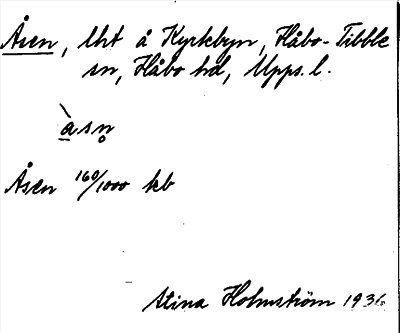 Åsen, lht å Kyrkbyn, Håbo-Tibble
sn, Håbo hd, Upps. l.
à̱sn̥
Åsen 160/1000 kb
Stina Holmström 1936